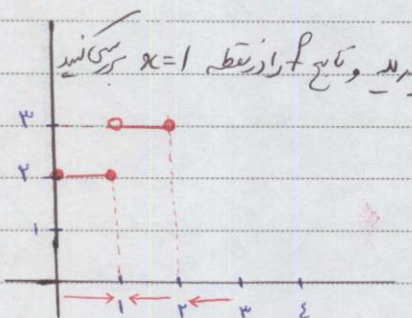 و تابع f را در نقطه x=1 بررسی کنید
۳
۲
۱
۱ ۲ ۳ ٤